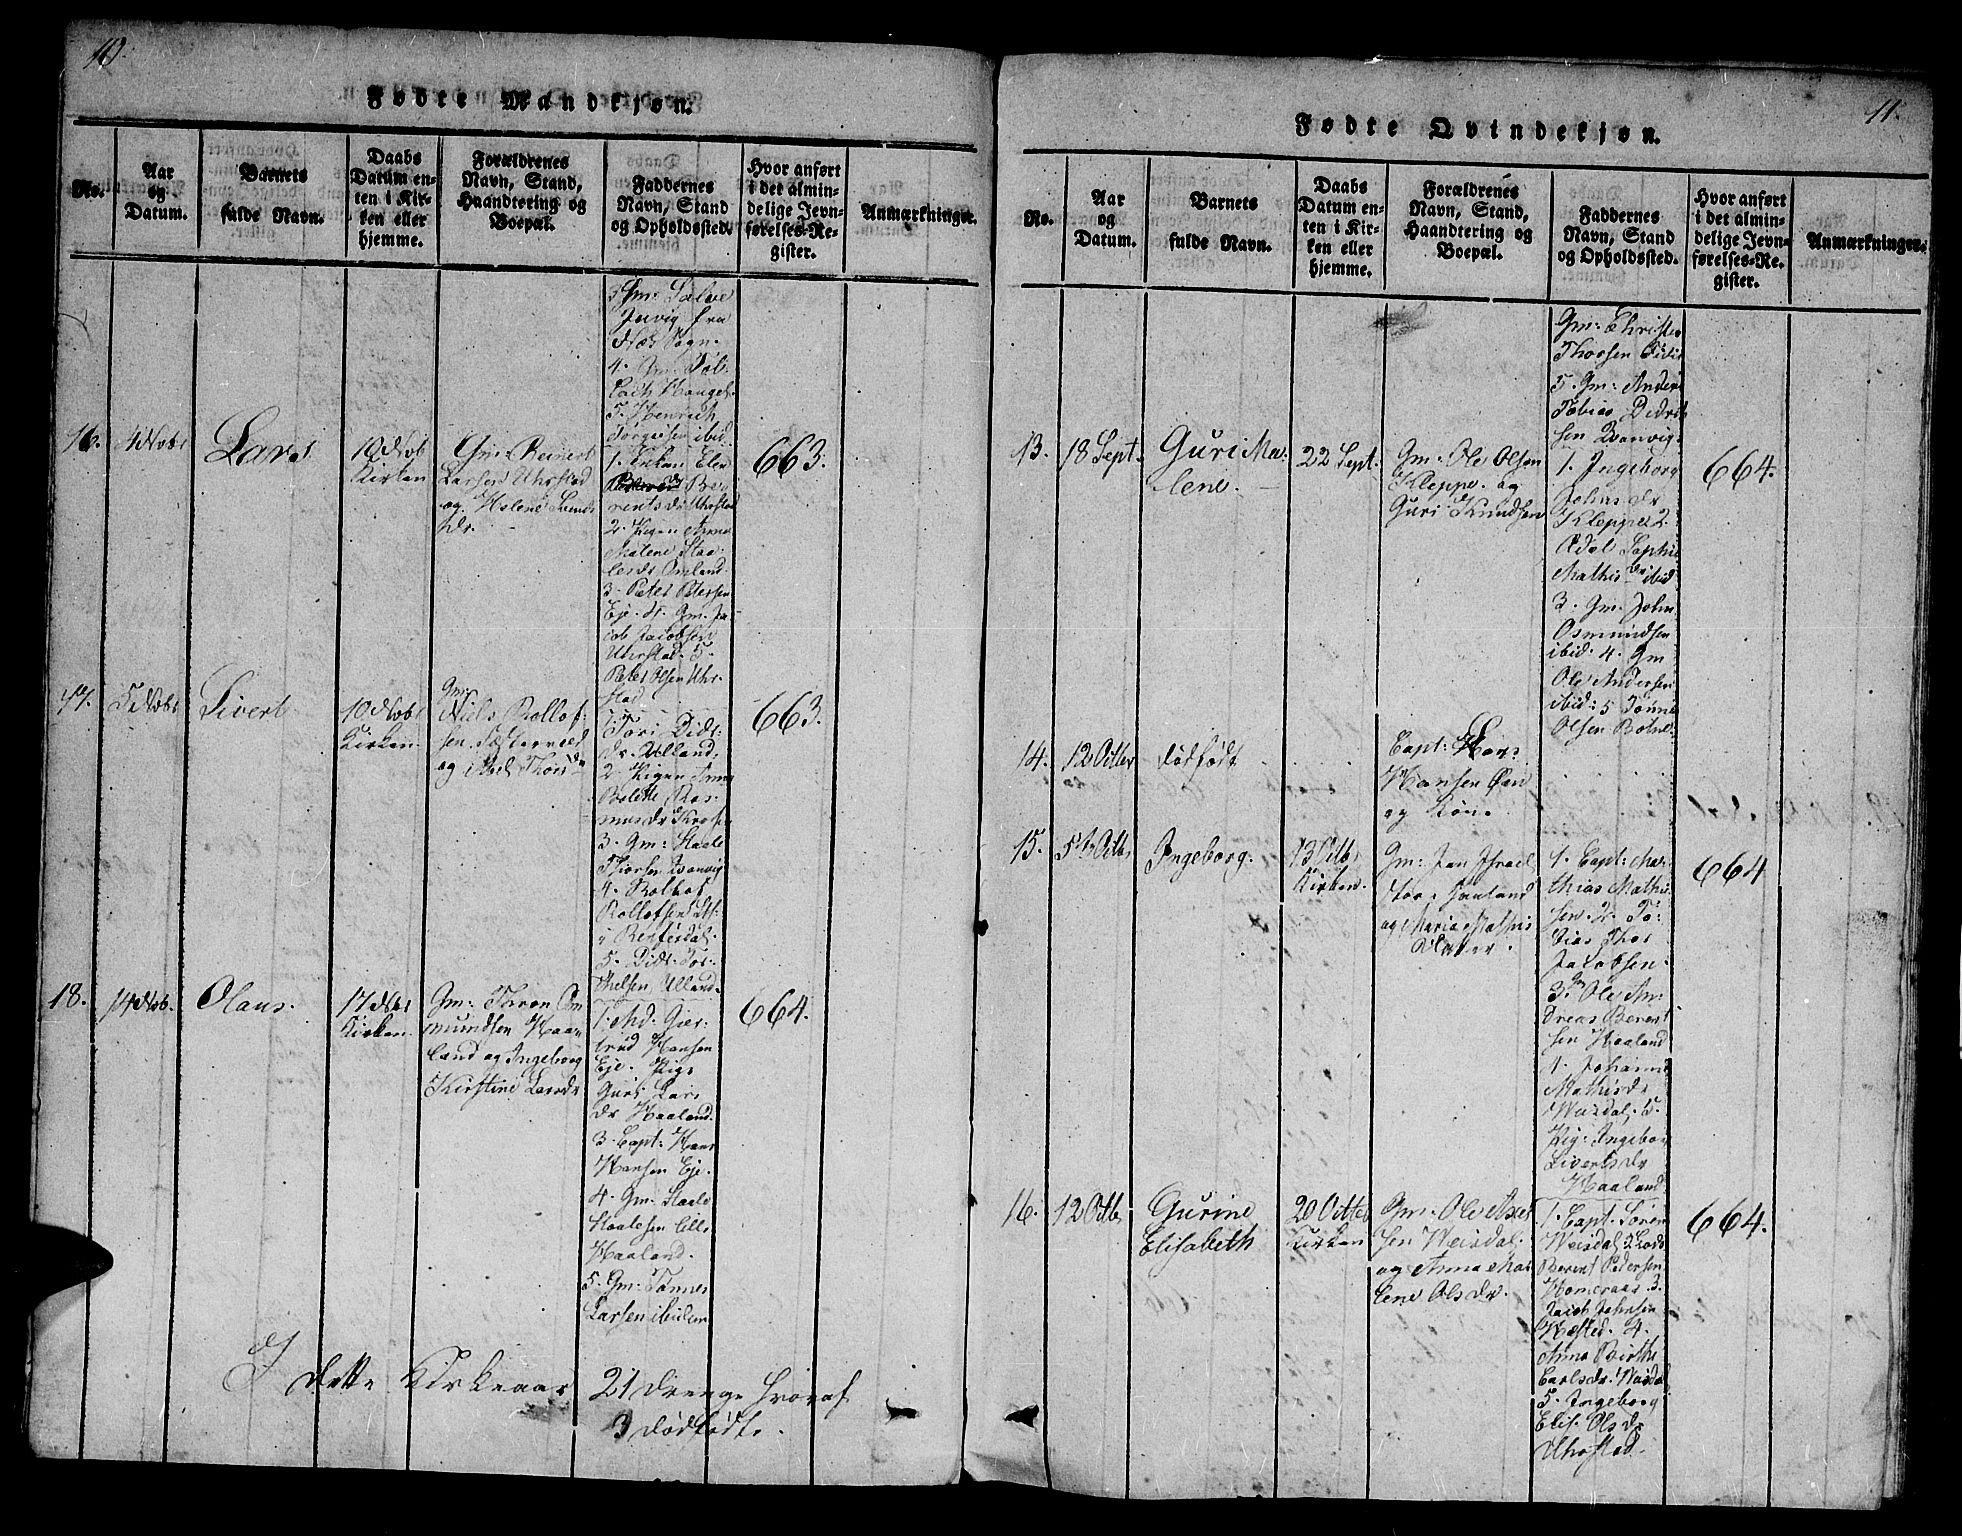 10.
Fødte Mandkjøn.
No.
Aar
og
Datum.
Barnets
fulde Navn.
Daabs
Datum en-
ten i Kir-
ken eller
hjemme.
Forældrenes
Navn, Stand,
Haandtering og
Boepæl.
Faddernes
Navn, Stand
og Opholdssted.
Hvor anført
i det almin-
delige Jevn-
førelses-Re-
gister.
Anmærkninger.
3 Gm: Salve
fra
Næs Sogn.
4. Gm.
5. Henrich
ibid
16.
4 Novbr
Lars
10 Novb
Kirken
Gm. Reinert
Larsen Uhrstad
og Helene Svends
dr.
1.
Be-
rents dr Uhrstad
2. Pigen Anne
Malene Staa-
lesdr Omland
3. Peter Petersen
Eje. 4. Gm. Ja-
cob Jacobsen
Uhrstad. 5.
Peter Olsen Uhr-
stad
663.
17.
5 Novbr
Sivert
10 Novbr
Kirken.
Gm.
Niels Rollof-
sen
og Thors dr
1. Tori Didr.
dr. Ulland.
2. Pigen Anne
Bolette Ras-
mus dr
3. Gm: Staale
Thorsen Qvanvig
4. Rolhof
Rollofsen
5. Didr. Tor-
kelsen Ulland.
663.
18.
14 Novb.
Olaus.
17 Novbr
Kirken
Gm: Thron Om-
mundsen Haa-
land og Ingeborg
Kirstine Larsdr
1. Md. Gier-
trud Hansen
Eje. Pig.
Guri Lars
dr Haaland.
3. Capt: Hans
Hansen Eje.
4. Gm. Staale
Staalesen
Haaland.
5. Gm: Tønnes
Larsen ibidem
664.
I dette Kirkeaar 21 Drenge hvoraf
3 dødfødte.
11.
Fødte Qvindekjøn.
No.
Aar
og
Datum.
Barnets
fulde Navn.
Daabs
Datum en-
ten i Kir-
ken eller
hjemme.
Forældrenes
Navn, Stand,
Haandtering og
Boepæl.
Faddernes
Navn, Stand
og Opholdssted.
Hvor anført
i det almin-
delige Jevn-
førelses-Re-
gister.
Anmærkninger.
Gm: Christen
Thorsen
5. Gm: Anders
Tobias Didrik
sen Qvanvig.
13.
18 Sept.
Guri Ma-
lene.
22 Sept.
Gm: Ole Olsen
Kleppe. og
Guri Knudsen
1. Ingeborg
Johns dr
Kleppe 2.
Adel Sophie
Mathis dr ibid
3. Gm. John
Osmundsen
ibid. 4. Gm
Ole Andersen
ibid: 5 Tønnes
Olsen Botne.
664.
14.
12 Octbr
dødfødt
Capt: Hans
Hansen Øen
og Kone.
15.
5te Octbr
Ingeborg.
13 Octbr
Kirken.
Gm: Jan Israel
og Maria Mathis
datter.
1. Capt: Ma-
thias Mathi-
sen. 2. To-
bias Thor
Jacobsen.
3. Gm Ole An-
dreas Berent
sen Haaland
4. Johanne
Mathisdr
5.
Pig: Ingeborg
Sivertsdr
Haaland
664
16.
12 Octbr
Gurine
Elisabeth
20 Octbr
Kirken
Gm: Ole
sen
og Anna Ma-
lene Olsdr.
1. Capt. Søren
2
Berent Pedersen
3.
Jacob Johnsen
4.
Anna Birthe
Carlsdr.
5. Ingeborg
Elis. Olsdr
Uhrstad.
664.